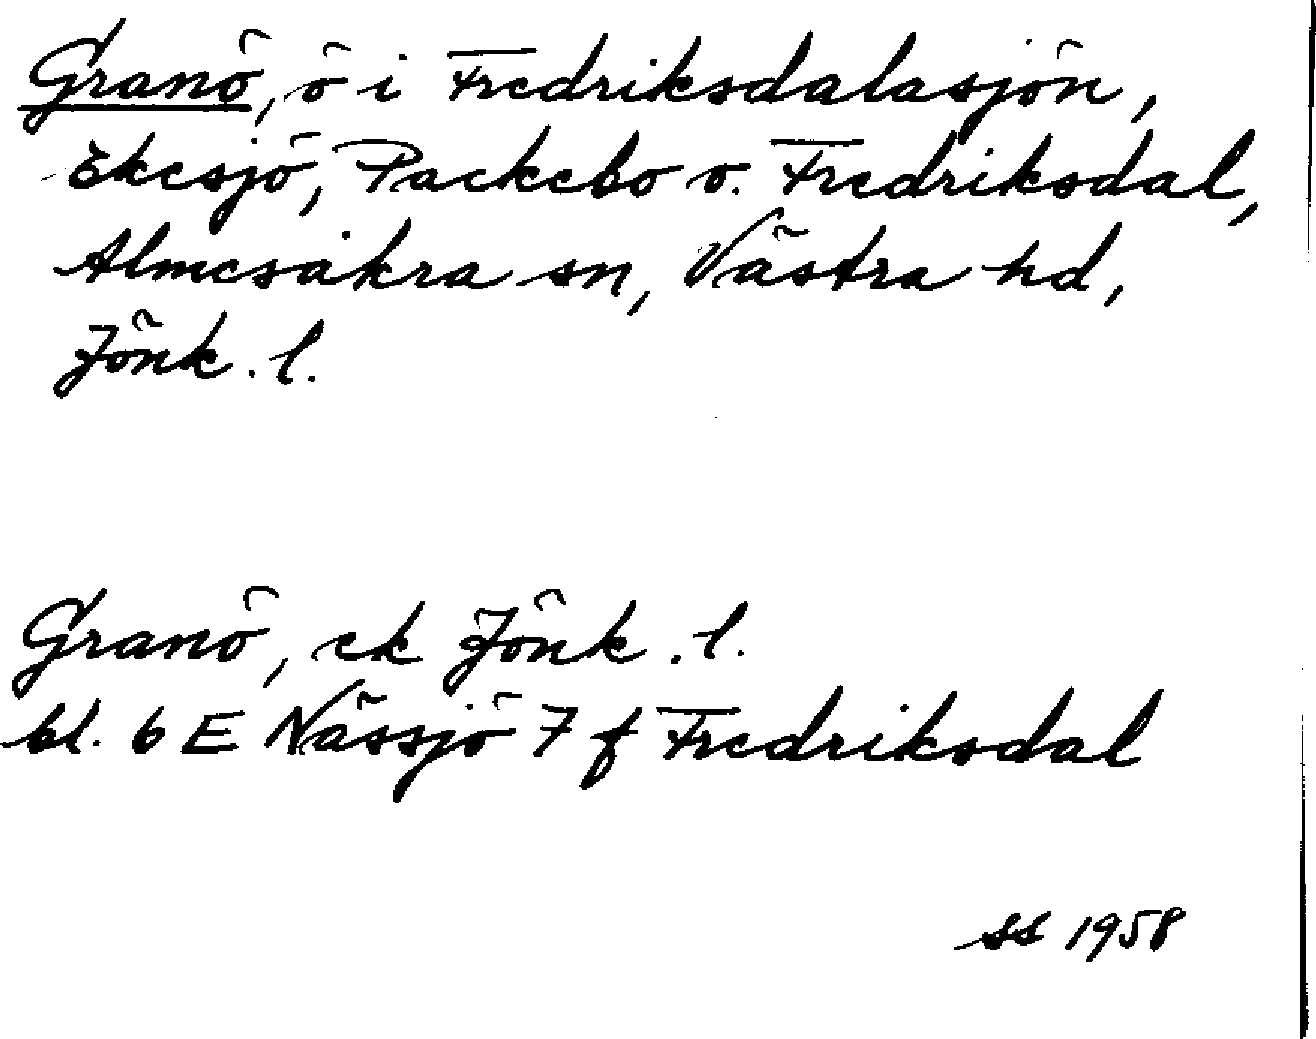 Granö, ö i Fredriksdalasjön,
Ekesjö, Packebo o. Fredriksdal,
Almesåkra sn, Västra hd,
Jönk. l.
Granö, ek Jönk. l.
bl. 6 E Nässjö 7 f Fredriksdal
SS 1958